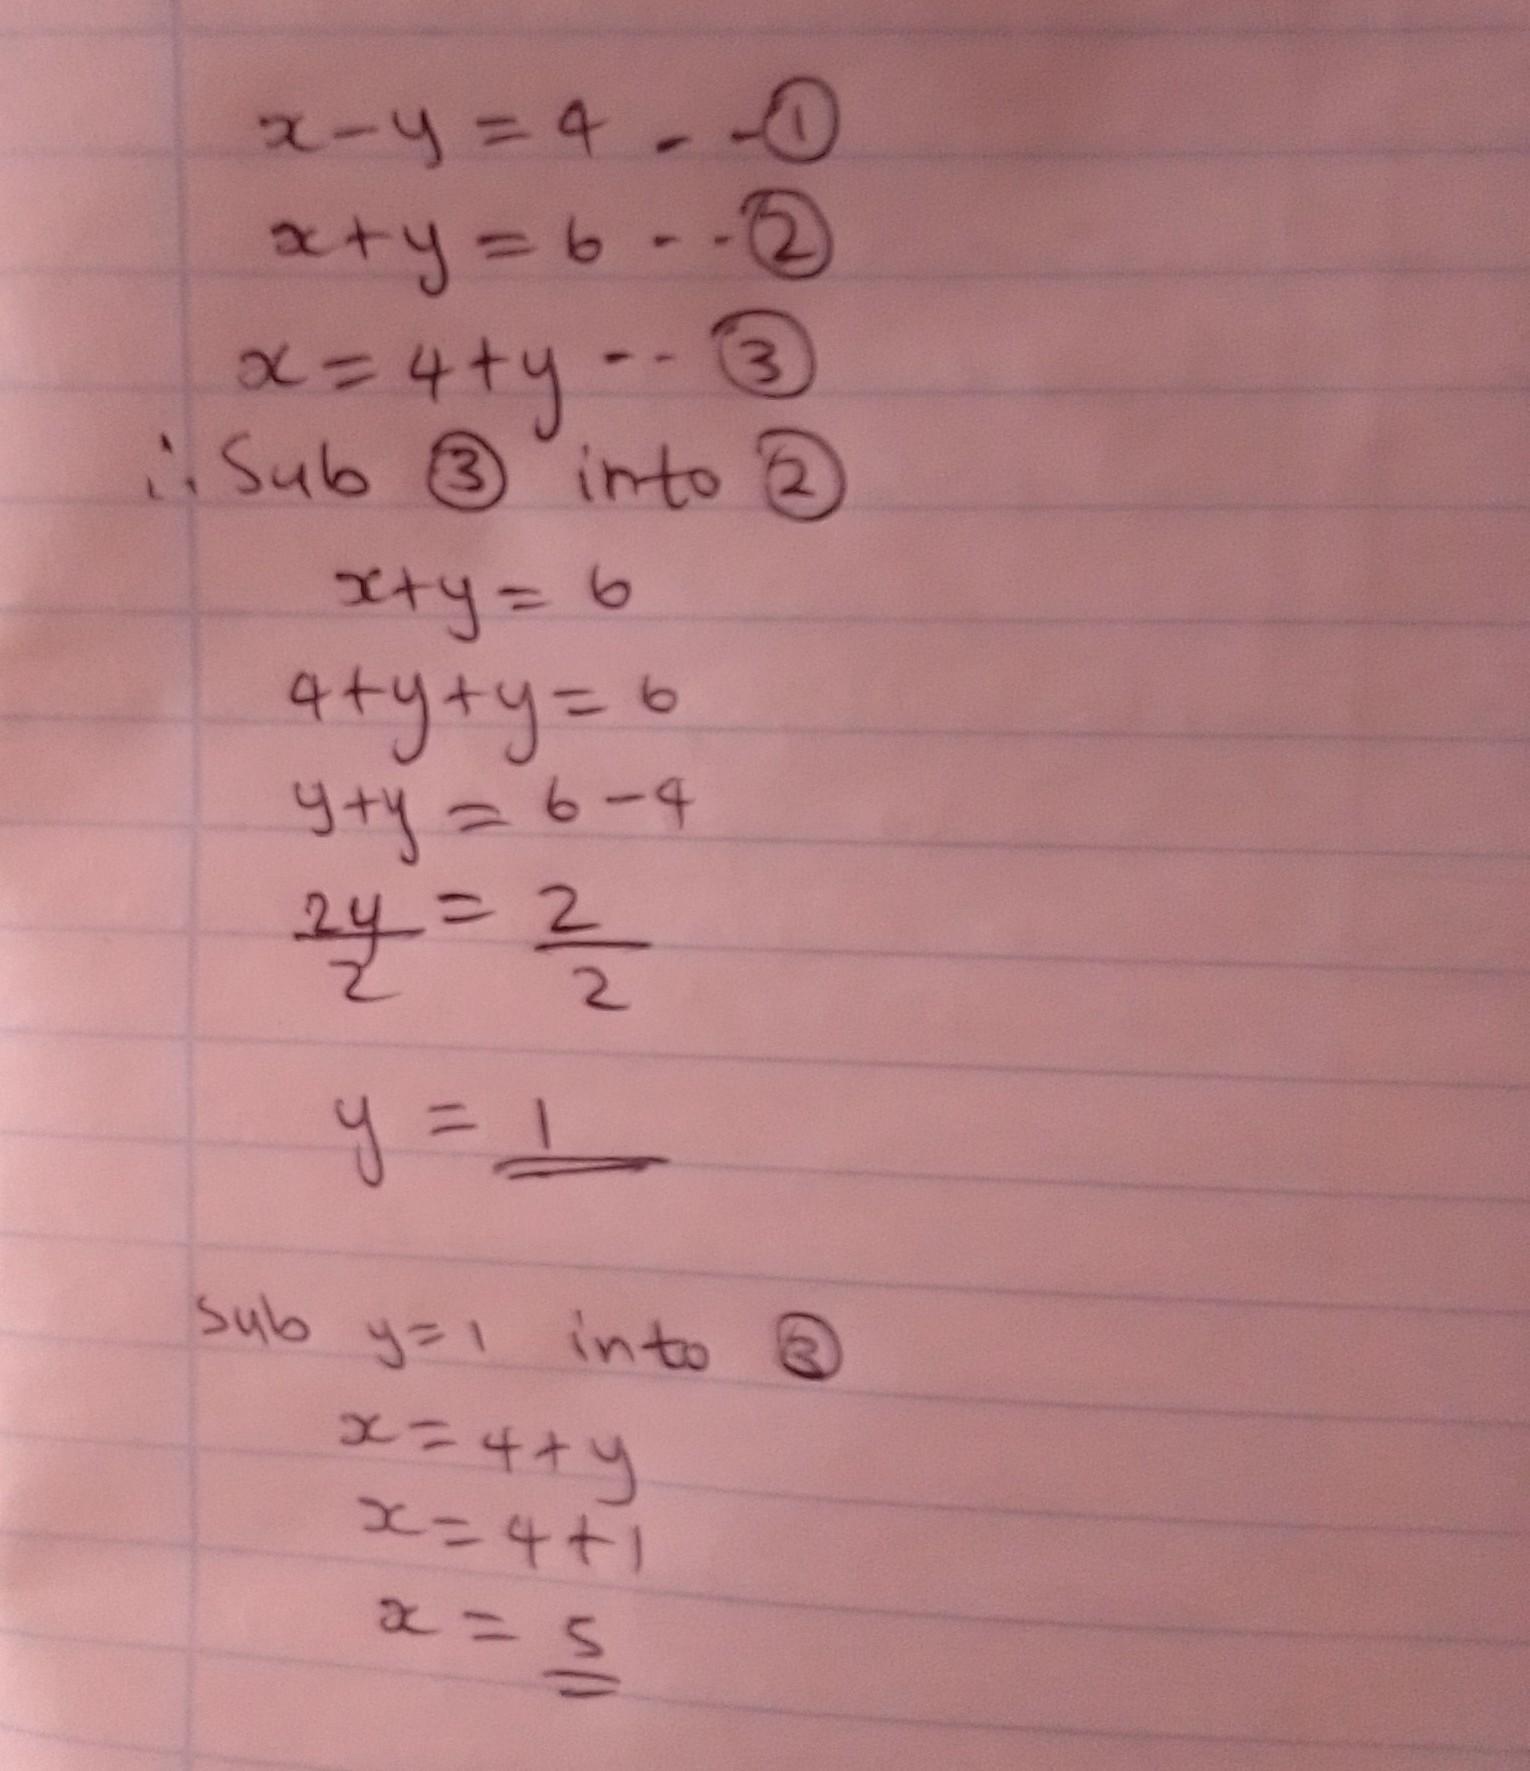 x-y=4 - -①
x+y=6 - -②
x=4+y -- ③
∴ Sub ③ into ②
x+y=6
4+y+y=6
y+y=6-4
2y/2 = 2/2
y = 1
Sub y=1 into ③
x=4+y
x=4+1
x=5